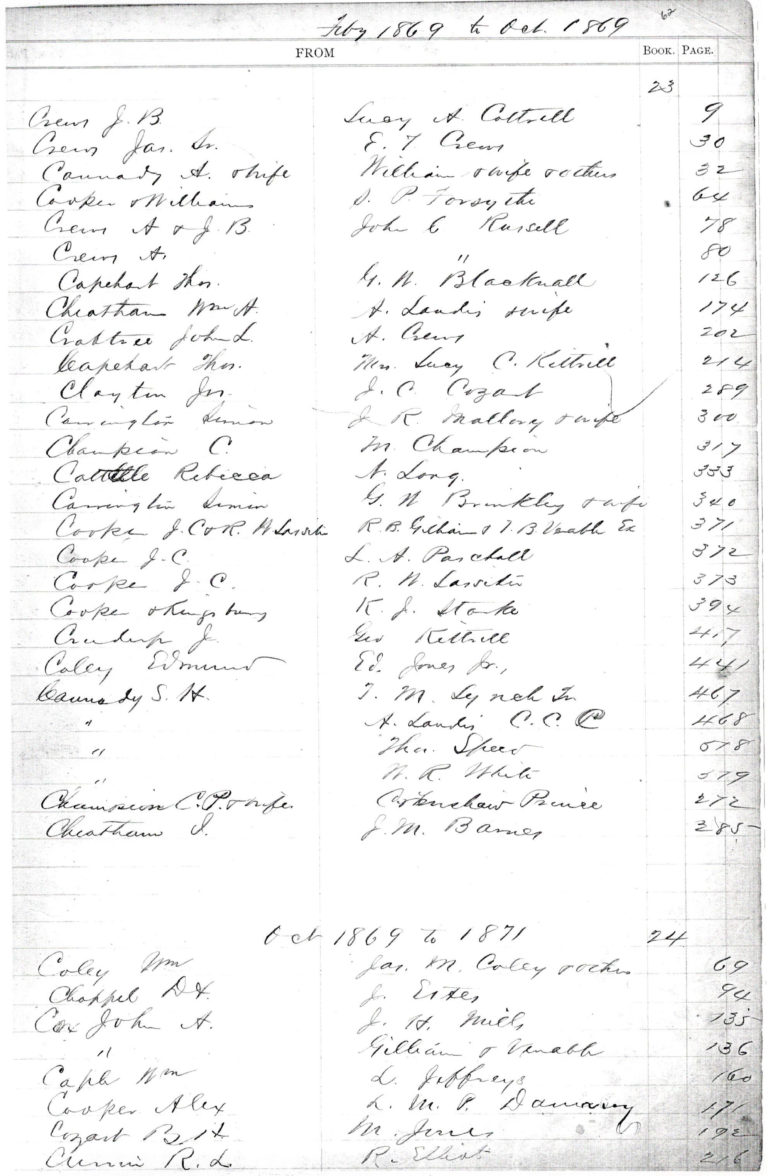 62
Feby 1869 to Oct. 1869
FROM BOOK. PAGE.
23
Crews J. B. Lucy A Cottrell 9
Crews Jas. Sr. E. T Crews 30
Cannady A. & wife William & wife & others 32
Cooper & Williams S. P Forsythe 64
Crews A & J. B. John C Russell 78
Crews A. " 80
Capehart Thos. G. W. Blacknall 126
Cheatham Wm A. A. Landis & wife 174
Crabtree John L. A. Crews 202
Capehart Thos. Mrs. Lucy C. Kittrell 214
Clayton Jas. J. C. Cozart 289
Carrington Simon J R. Mallory & wife 300
Champion C. M. Champion 317
Rebecca N. Long. 333
Carrington Simon G. W Brinkley & wife 340
Cooper J. C & R. W Lassiter R. B. Gilliam & T. B Venable Ex 371
Cooper J. C. L. A. Paschall 372
Cooper J. C. R. W. Lassiter 373
Cooper & Kingsbury K. J. Starke 394
Crudup J. Geo Kittrell 417
Coley Edmund Ed. Jones Jr., 441
Cannady S. H. T. M. Lynch Tr 467
" A. Landis C. C. C 468
" Thos. Speed 578
" W. R. White 579
Champion C. P. & wife Prince 272
Cheatham I. J. M. Barnes 285
Oct 1869 to 1871 24
Coley Wm Jas. M. Coley & others 69
Chappel J. Estes 94
Cox John A. J. H. Mills 135
" Gilliam & Venable 136
Wm L. Jeffreys 160
Cooper Alex L. M. P. 171
Cozart B. H. M. Jones 192
R. L R. Elliot 216